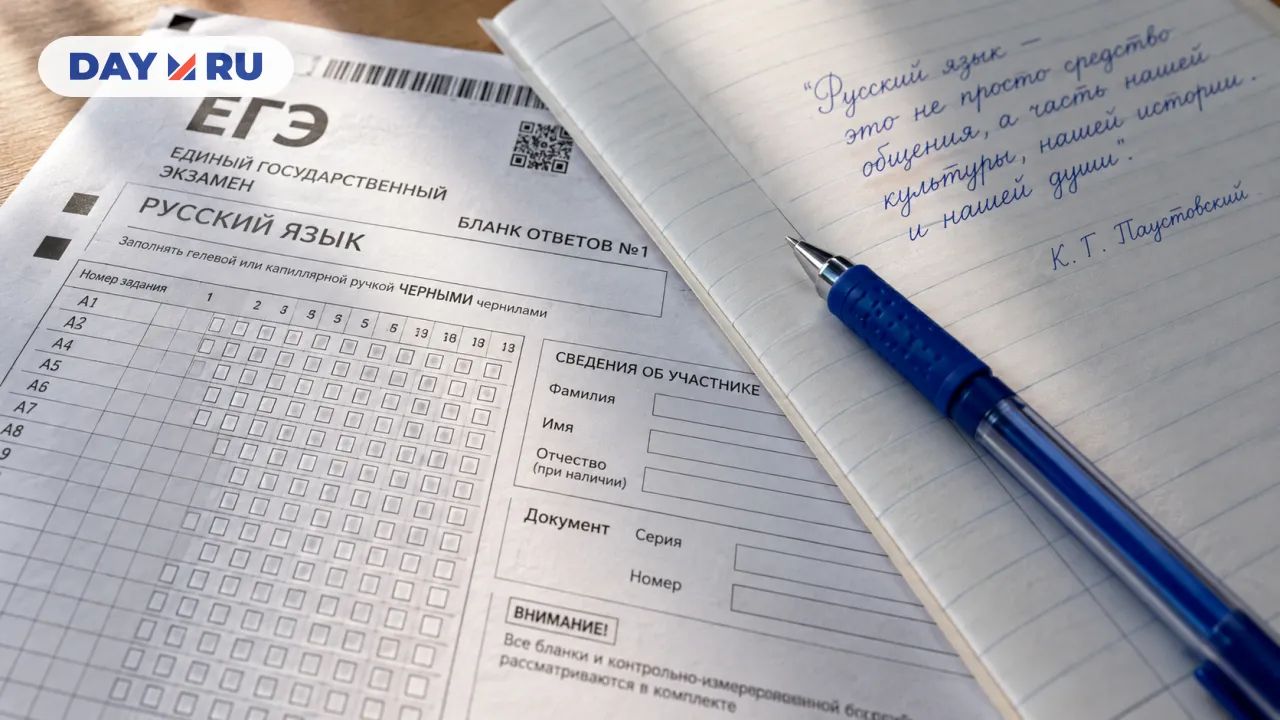 DAY RU
ЕГЭ
ЕДИНЫЙ ГОСУДАРСТВЕННЫЙ
ЭКЗАМЕН
РУССКИЙ ЯЗЫК
БЛАНК ОТВЕТОВ №1
Заполнять гелевой или капиллярной ручкой ЧЕРНЫМИ чернилами
Номер задания
1 2 3 5 5 5 6 13 16 13 13
А1
А3
А4
А5
А6
А7
А8
9
СВЕДЕНИЯ ОБ УЧАСТНИКЕ
Фамилия
Имя
Отчество
(при наличии)
Документ Серия
Номер
ВНИМАНИЕ!
Все бланки и контрольно-измеререованной
рассматриваются в комплекте
"Русский язык —
это не просто средство
общения, а часть нашей
культуры, нашей истории.
и нашей души".
К. Г. Паустовский